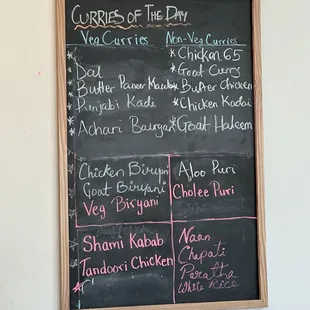 CURRIES OF THE DAY
Veg Curries
* Dal
* Butter Paneer Masala
* Punjabi Kade
* Achari Baingan
Non-Veg Curries
* Chicken 65
* Goat Curry
* Butter Chicken
* Chicken Kadai
* Goat Haleem
Chicken Biryani
Goat Biryani
Veg Biryani
Aloo Puri
Cholee Puri
Shami Kabab
Tandoori Chicken
Naan
Chapati
Paratha
White Rice